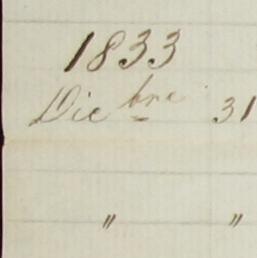 1833
Diebre 31
" "